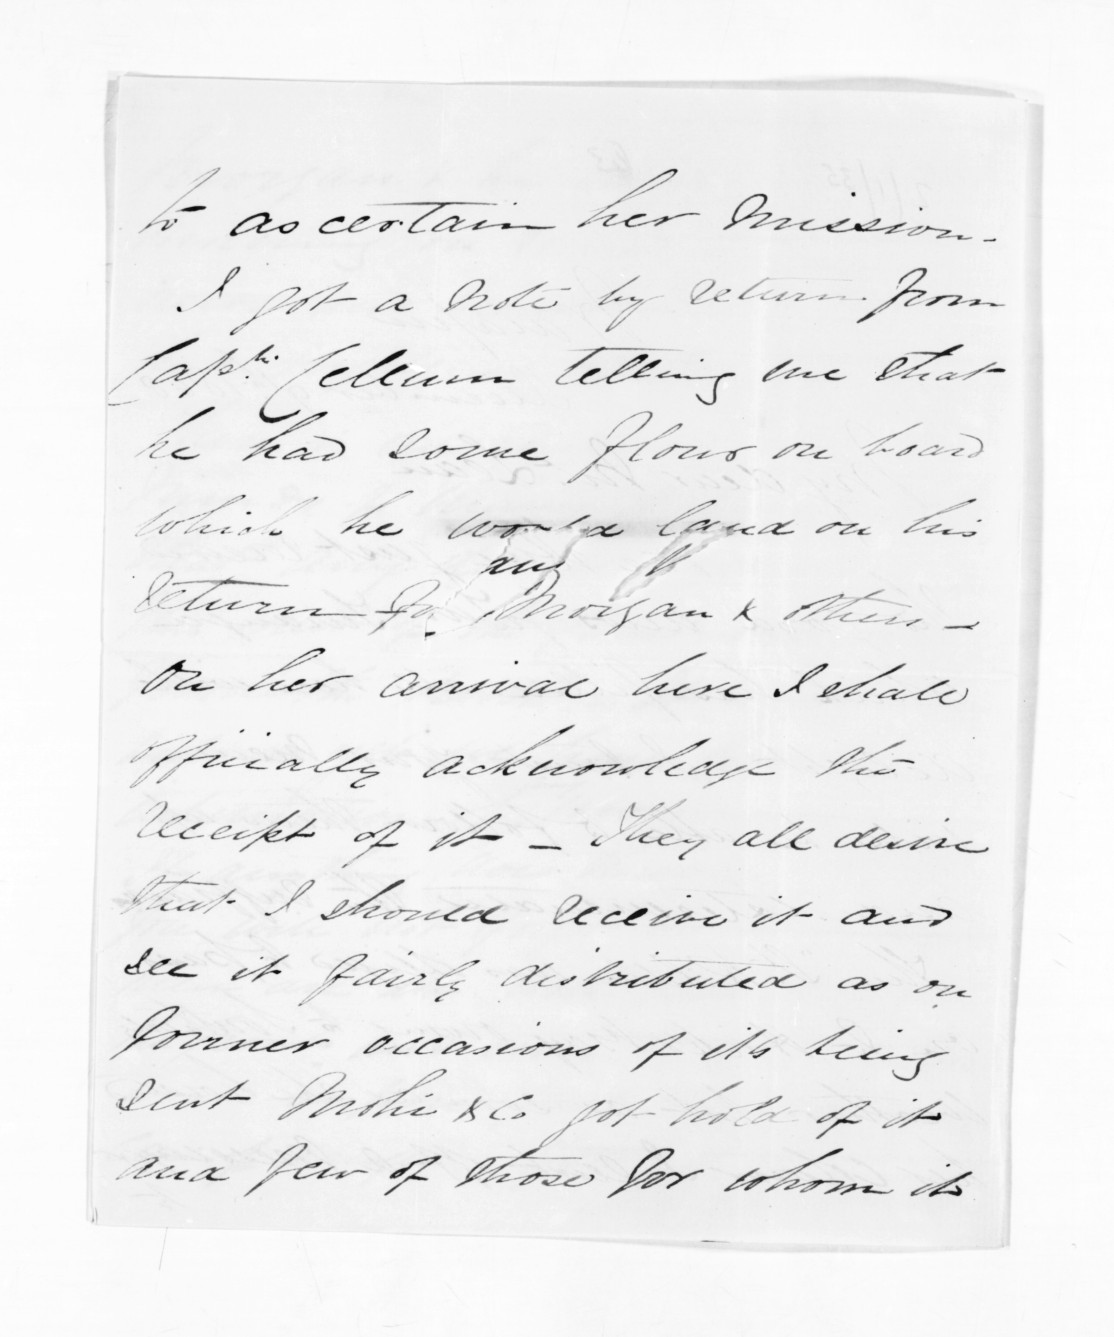 to ascertain her mission.
I got a note by return from
Captn. Cellum telling me that
he had some flour on board
which he would land on his
return for Morgan & others _
on her arrival here I shall
officially acknowledge the
receipt of it _ They all desire
that I should receive it and
see it fairly distributed as on
former occasions of its being
sent Mohi & Co got hold of it
and few of those for whom it